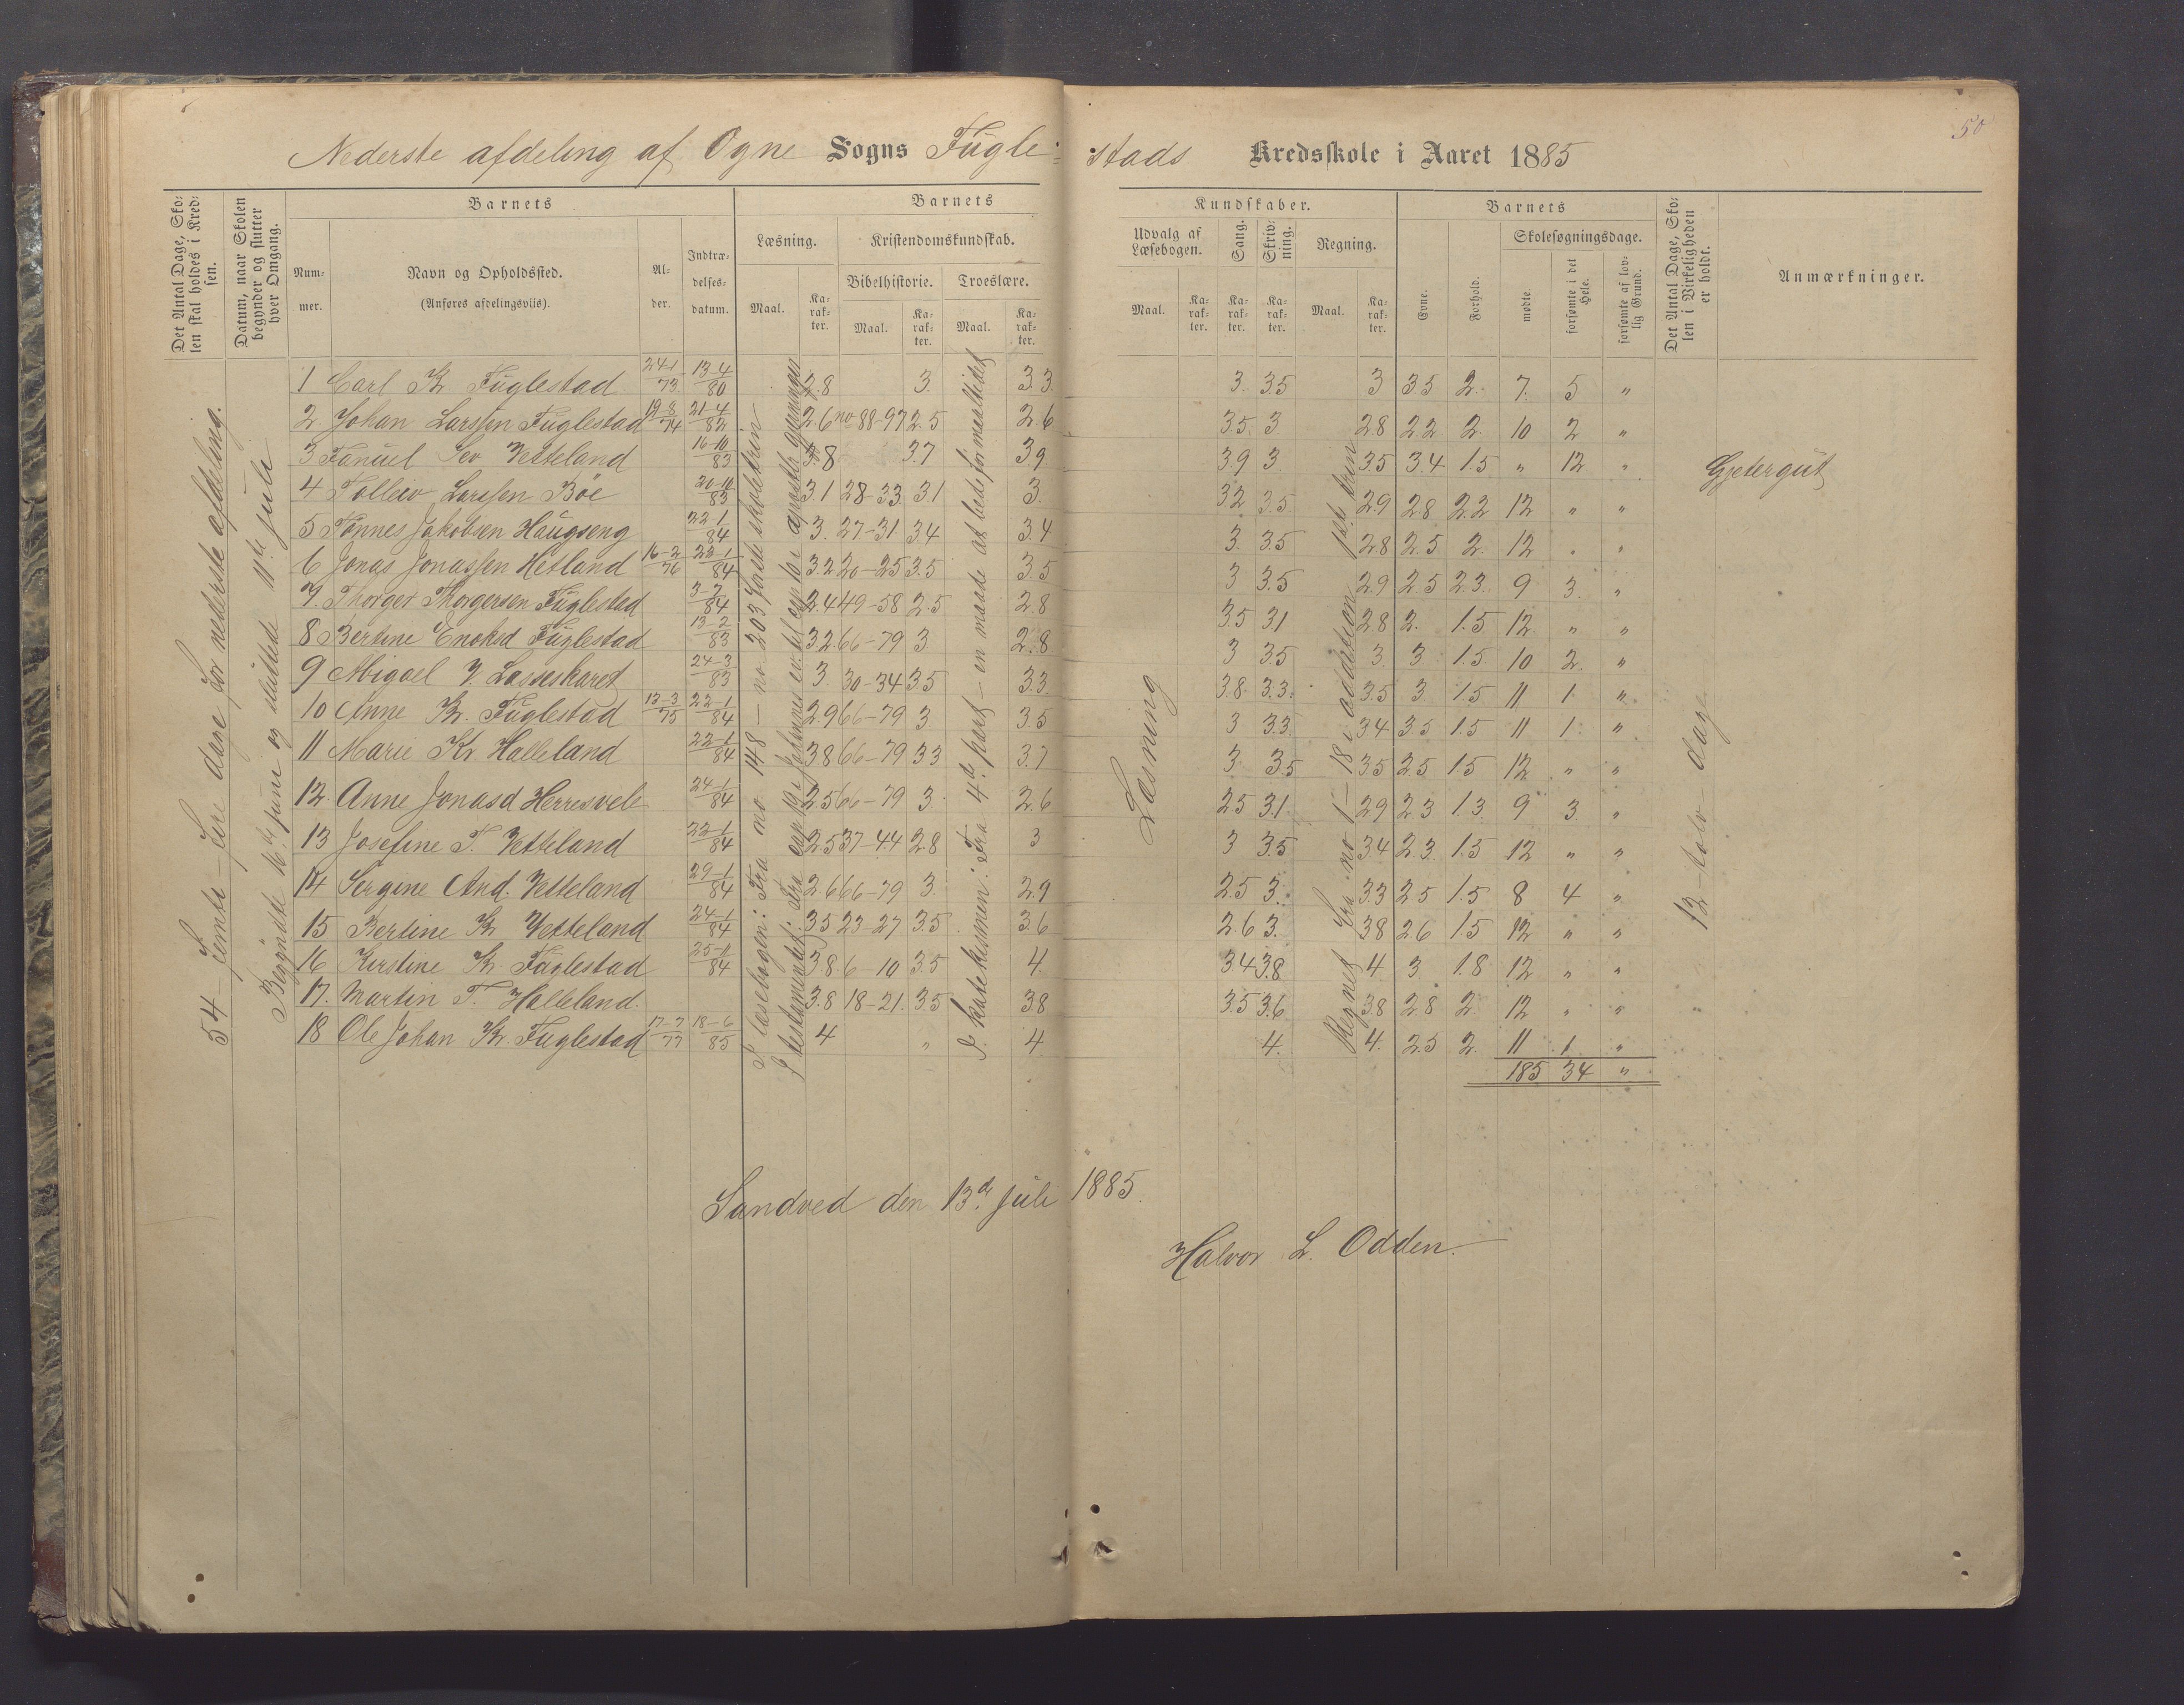 50
Nederste afdeling af Ogne Sogns Fugle-stads Kredsskole i Aaret 1885
Det Antal Dage, Skolen skal holdes i Kredsen.
Datum, naar Skolen begynder og slutter hver Omgang.
Barnets
Nummer.
Navn og Opholdssted.
(Anføres afdelingsvis).
Alder.
Indtrædelsesdatum.
Barnets Kundskaber.
Læsning.
Maal. Karakter.
Kristendomskundskab.
Bibelhistorie. Troeslære.
Maal. Karakter. Maal. Karakter.
Udvalg af Læsebogen.
Maal. Karakter.
Sang. Karakter.
Skrivning. Karakter.
Regning.
Maal. Karakter.
Barnets
Evne. Forhold.
Skolesøgningsdage.
mødte. forsømte i det Hele. forsømte af lovlig Grund.
Det Antal Dage, Skolen i Virkeligheden er holdt.
Anmærkninger.
54 - femti - fire dage for nederste afdeling.
Begyndte 16de juni og sluttede 11de juli
I læsebogen: Fra no 148 - no 203 første skoletrin
I katekismen: Fra 4de part - en maade at bede for maaltidet
Læsning
Regnet fra no 1 - 18 i addition
12 - tolv - dage
1 Carl K. Fuglestad 24-1/73 13-4/80 2.8 3. 3.3. 3. 3.5 3 3.5 2. 7. 5 "
2. Johan Larssen Fuglestad 19-8/74 21-4/82 2.6 no 88-97 2.5 2.6 3.5. 3 2.8 2.2 2. 10 2 "
3 Fanuel Sev Vetteland 16-10/83 3.8 3.7 3.9 3.9 3 3.5 3.4 1.5 " 12 " Gjetergut
4 Tolleiv Larssen Böe 20-10/83 3.1 28-33. 3.1 3. 3.2 3.5 2.9 2.8 2.2 12 " "
5 Tönnes Jakobsen Haugseng 22-1/84 3. 27-31 3.4 3.4 3. 3.5 2.8 2.5 2. 12 " "
6 Jonas Jonassen Hetland 16-2/76 22-1/84 3.2 20-25 3.5 3.5 3 3.5 2.9 2.5 2.3. 9 3. "
7. Thorger Thorgersen Fuglestad 3-7/84 2.4 49-58 2.5 2.8 3.5 3.1 2.8 2. 1.5 12 " "
8 Bertine Enoksd Fuglestad 13-2/83 3.2 66-79 3 2.8 3 3.5 3. 3 1.5 10 2. "
9 Abigael Y. Lasseskaret 24-3/83 3. 30-34 3.5 3.3 3.8. 3.3. 3.5 3 1.5 11 1 "
10 Anne K. Fuglestad 13-3/75 22-1/84 2.9 66-79 3 3.5 3 3.3. 3.4 3.5 1.5 11 1 "
11 Marie Kr Halleland 22-1/84 3.8 66-79 3.3 3.7 3. 3.5 3.5 2.5 1.5 12 " "
12. Anne Jonasd Herresvele 24-1/84 2.5 66-79 3. 2.6 2.5 3.1 2.9 2.3 1.3. 9 3 "
13 Josefine T. Vetteland 22-1/84 2.5 37-44 2.8 3 3 3.5 3.4 2.3. 1.5 12 " "
14 Sergine And. Vetteland 29-1/84 2.6 66-79 3. 2.9 2.5 3. 3.3 2.5 1.5 8 4 "
15 Bertine K Vetteland 24-1/84 3.5 23-27 3.5. 3.6 2.6 3. 3.8 2.6 1.5 12 " "
16 Kirstine K. Fuglestad 25-11/84 3.8 6-10 3.5 4. 3.4 3.8 4 3 1.8 12 " "
17. Martin T. Halleland. 3.8 18-21. 3.5 3.8 3.5 3.6 3.8 2.8 2 12 " "
18 Ole Johan K. Fuglestad 17-7/77 18-6/85 4 " 4. 4. 4. 2.5 2. 11 1 "
185 34 "
Sandved den 13de juli 1885.
Halvor L. Odden.